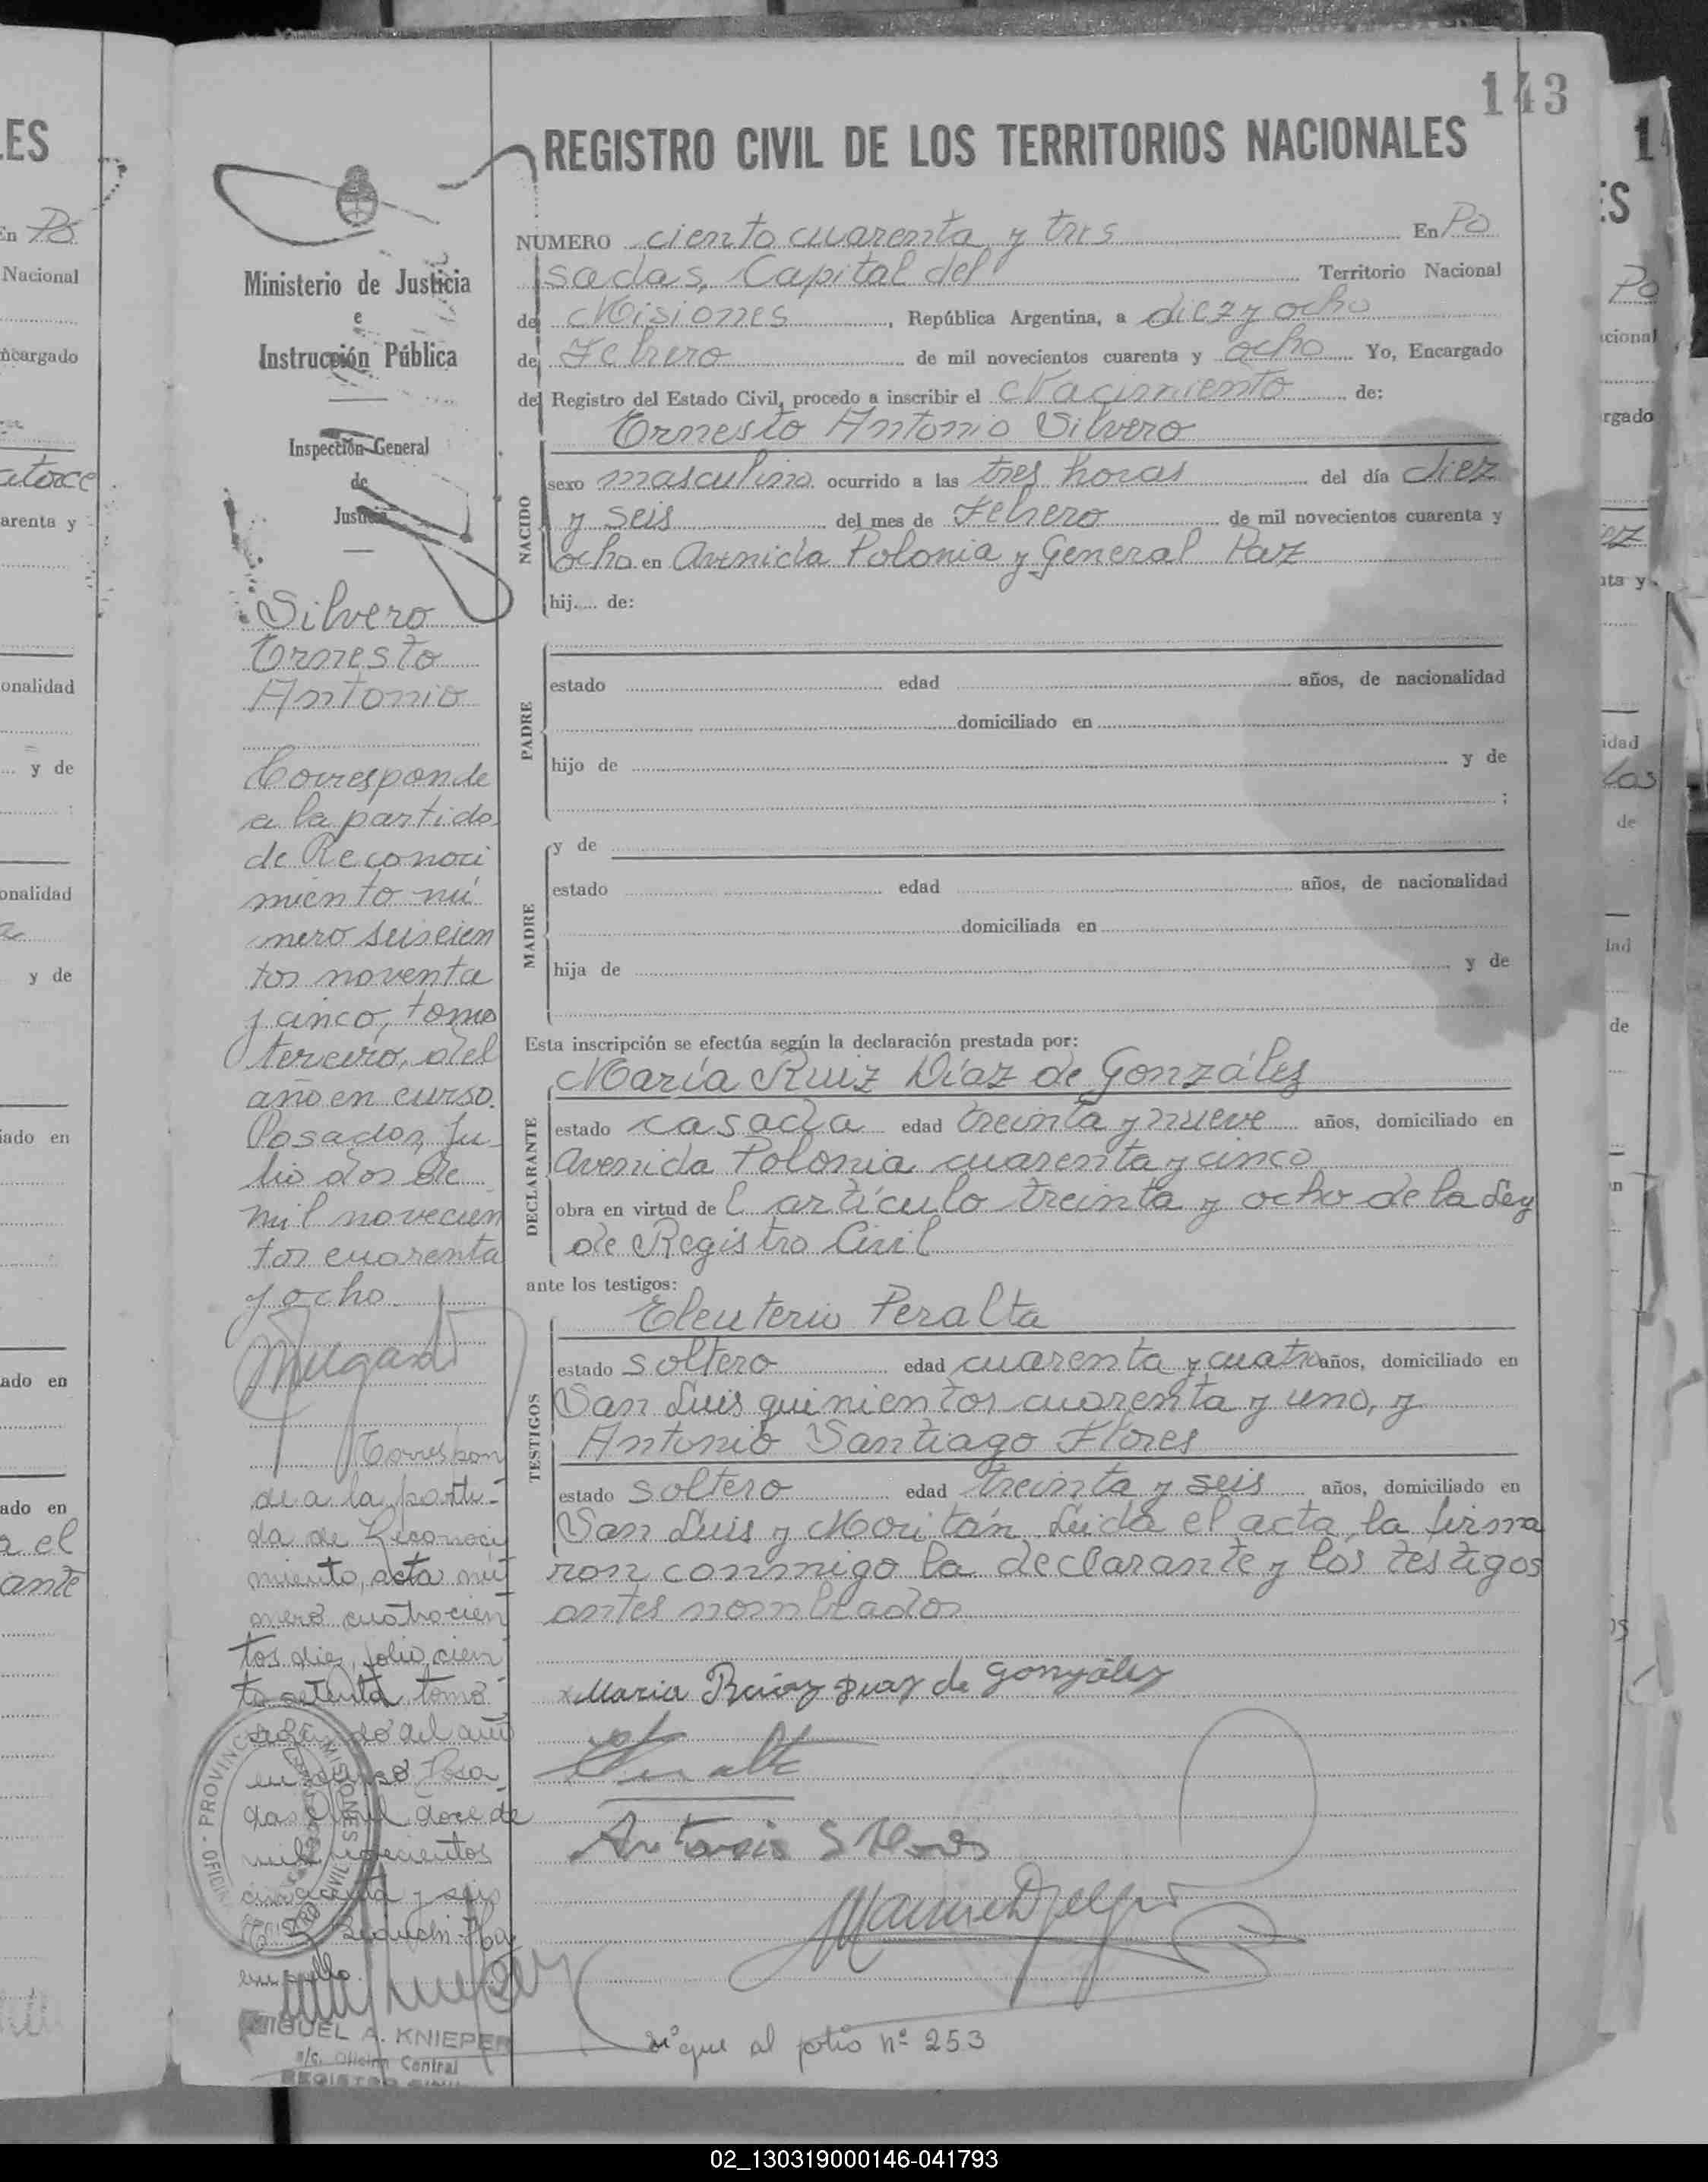 143
REGISTRO CIVIL DE LOS TERRITORIOS NACIONALES
Ministerio de Justicia
e
Instrucción Pública
Inspección General
de
Justicia
Silvero
Ernesto
Antonio
Corresponde
a la partida
de Reconoci
miento nú
mero seiscien
tos noventa
y cinco, tomo
tercero, del
año en curso.
Posadas, Ju
lio dos de
mil novecien
tos cuarenta
y ocho
Correspon
de a la parti-
da de Reconoci
miento, acta nú
mero cuatrocien
tos diez, folio cien
to setenta tomo
segundo del año
en curso Posa
das doce de
mil novecientos
cincuenta y seis
PROVINCIA MISIONES
MIGUEL A. KNIEPER
a/c. Oficina Central
REGISTRO CIVIL
NUMERO ciento cuarenta y tres En Po
sadas, Capital del Territorio Nacional
de Misiones, República Argentina, a diez y ocho
de Febrero de mil novecientos cuarenta y ocho Yo, Encargado
del Registro del Estado Civil, procedo a inscribir el Nacimiento de:
Ernesto Antonio Silvero
NACIDO
sexo masculino ocurrido a las tres horas del día diez
y seis del mes de Febrero de mil novecientos cuarenta y
ocho en Avenida Polonia y General Paz
hij.... de:
PADRE
estado edad años, de nacionalidad
domiciliado en
hijo de y de
;
MADRE
y de
estado edad años, de nacionalidad
domiciliada en
hija de y de
Esta inscripción se efectúa según la declaración prestada por:
DECLARANTE
María Ruiz Díaz de González
estado casada edad treinta y nueve años, domiciliado en
Avenida Polonia cuarenta y cinco
obra en virtud de l artículo treinta y ocho de la Ley
de Registro Civil
ante los testigos:
TESTIGOS
Eleuterio Peralta
estado soltero edad cuarenta y cuatro años, domiciliado en
San Luis quinientos cuarenta y uno, y
Antonio Santiago Flores
estado soltero edad treinta y seis años, domiciliado en
San Luis y Moritán Leída el acta la firma
ron conmigo la declarante y los testigos
antes nombrados
Maria Ruiz Diaz de González
Antonio S Flores
sigue al folio nº 253
02_130319000146-041793